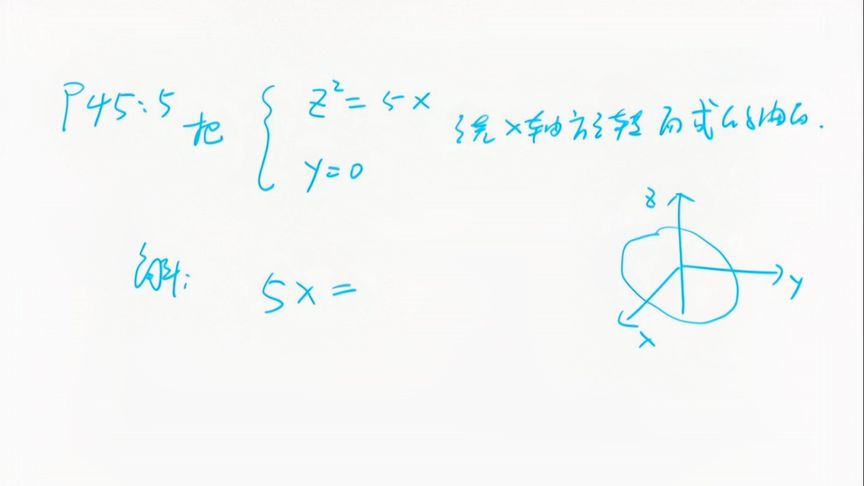 P45:5 把 { z²=5x
y=0 绕x轴旋转而成的曲面.
解: 5x=
z
y
x